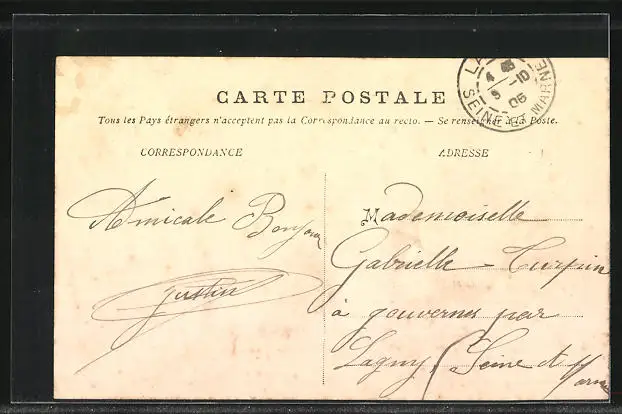 CARTE POSTALE
Tous les Pays étrangers n'acceptent pas la Correspondance au recto. — Se renseigner à la Poste.
CORRESPONDANCE
Amicale Bonjour
Justin
ADRESSE
Mademoiselle
Gabrielle - Turpin
à gouvernes par
Lagny (Seine et Marne
4
5 -10
06
SEINE ET MARNE